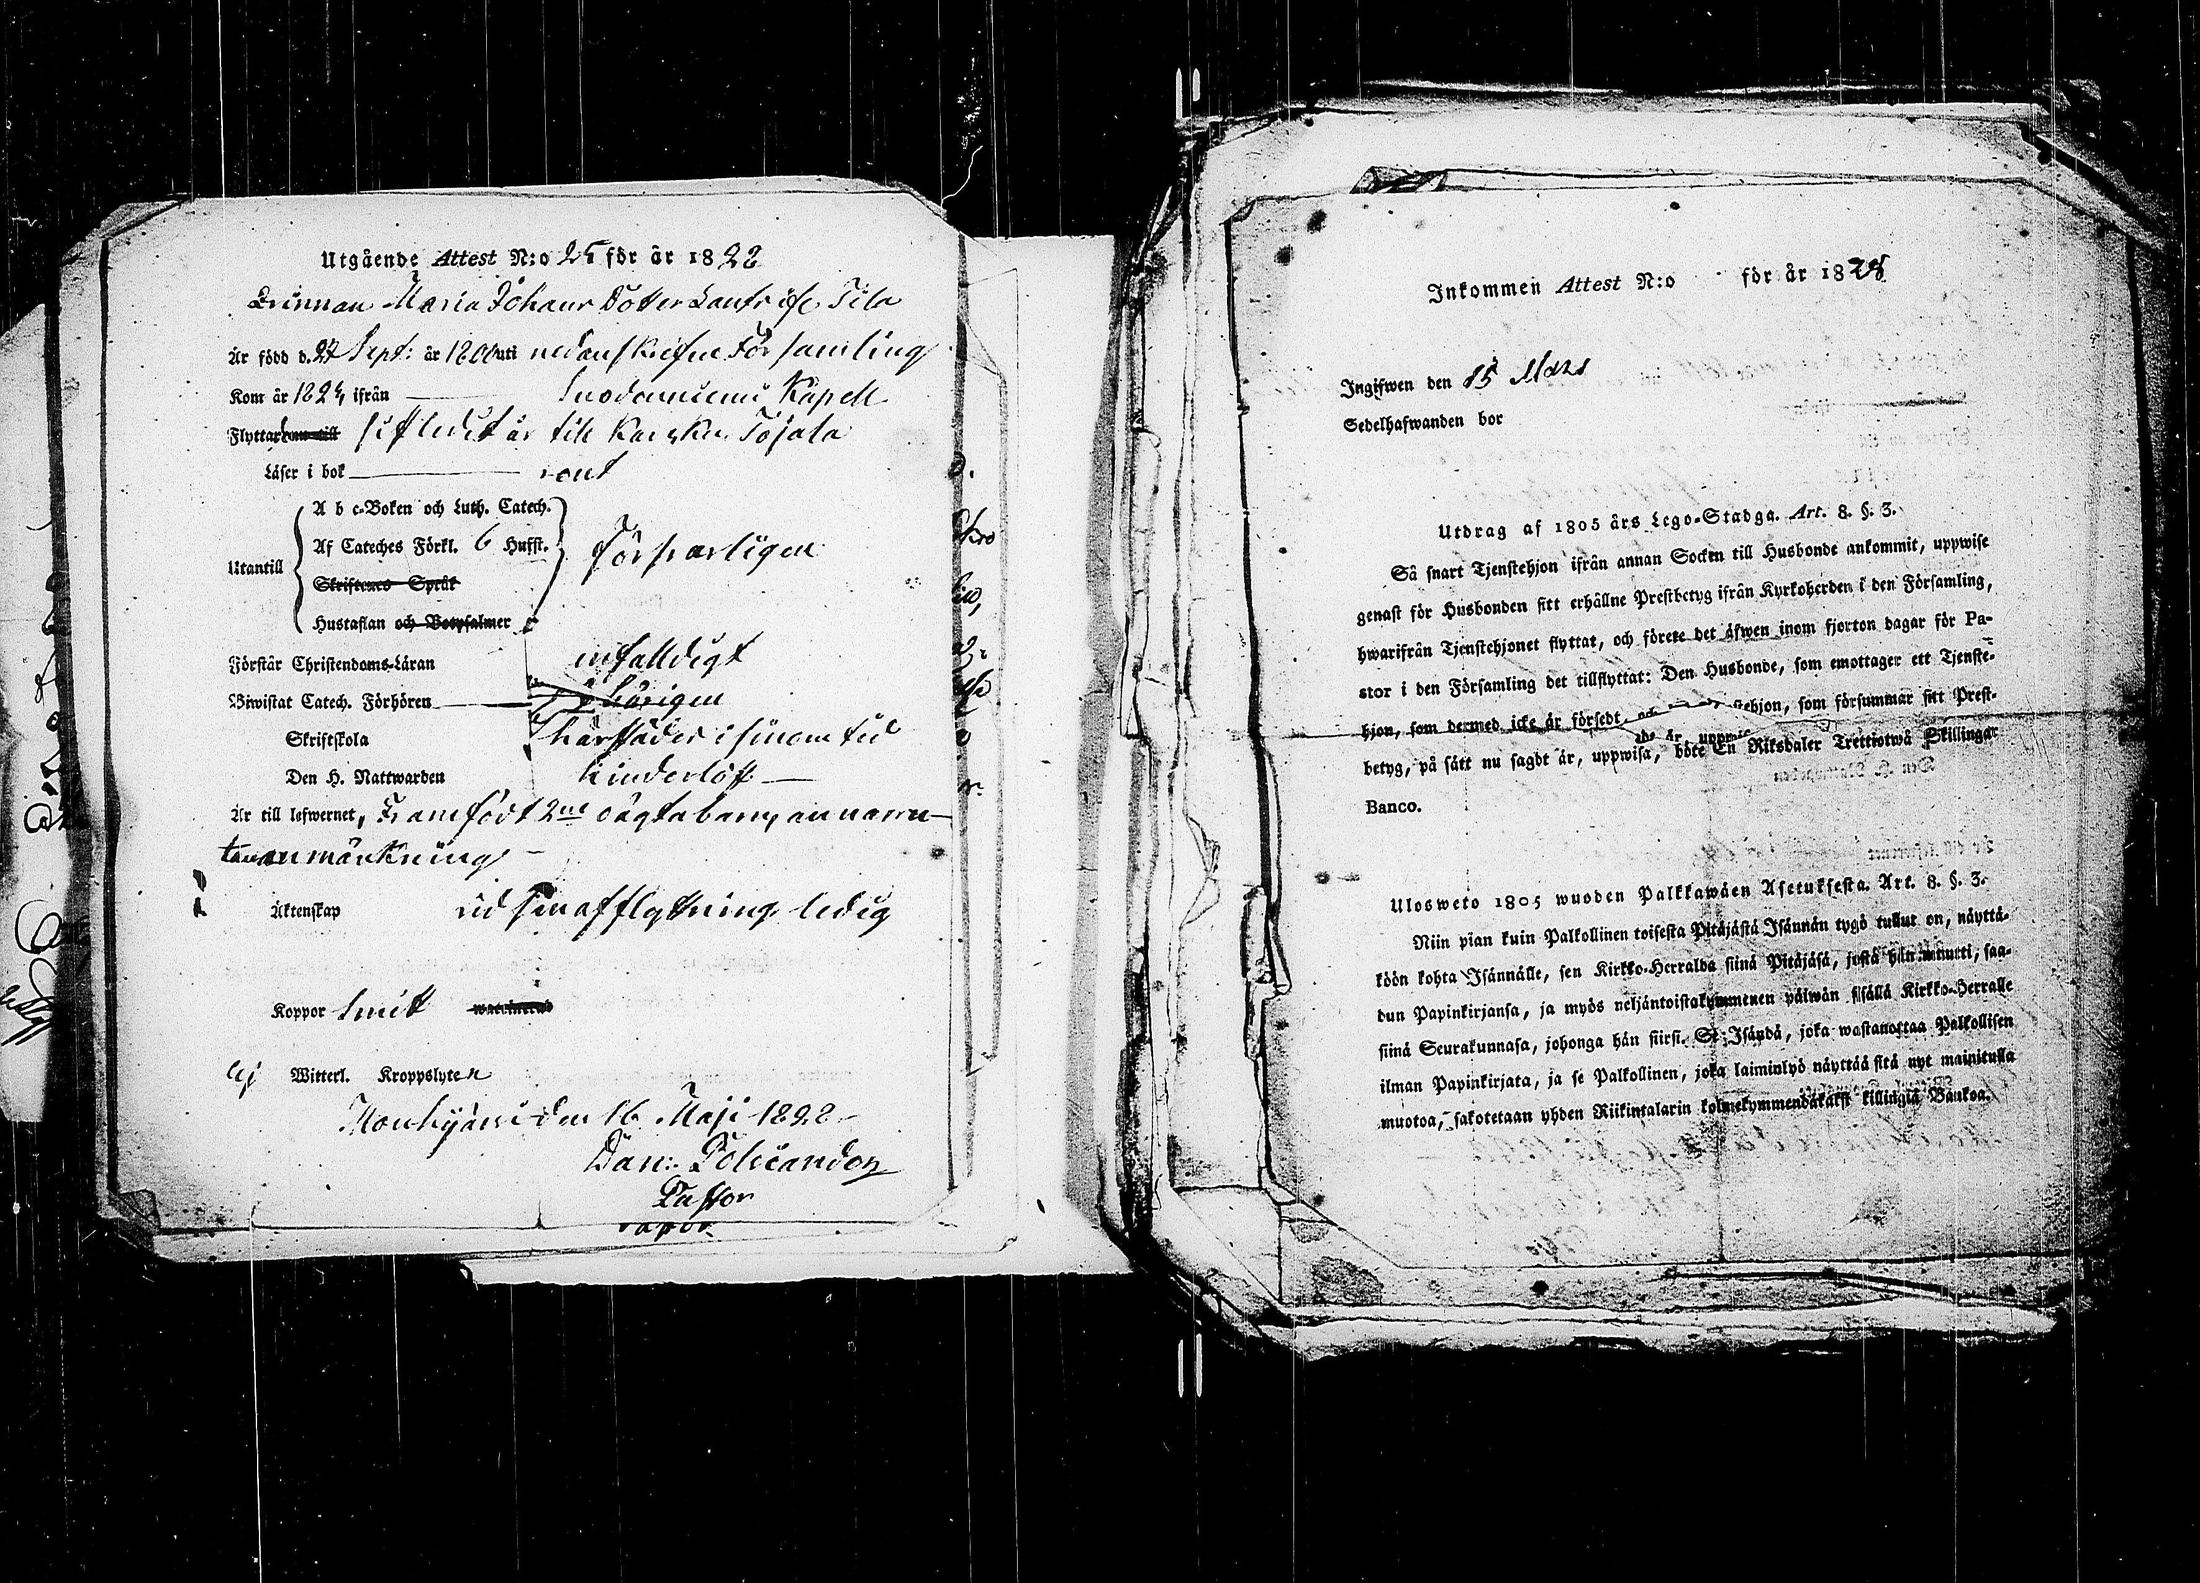 Utgående Attest N:o 25 för år 1828
Qvinnan Maria Johans Dotter
Är född d. 27 Sept: år 1800 uti nedanskrefne Församling
Kom år 182 ifrån — Kapell
Flyttar sistledit år till Töjala
Läser i bok — rent
A b c-Boken och Luth. Catech.
Af Cateches Förkl. 6 Hufst.
Utantill
Skriftenes Språk
Hustaflan och Botpsalmer
Förstår Christendoms-Läran enfalldigt
Biwistat Catech. Förhören
Skriftskola härstädes i sinom tid
Den H. Nattwarden hinderlöst —
Är till lefwernet, Framfödt 2ne oägta barn, annars
utan anmärkning —
Äktenskap vid sin afflyttning ledig
Koppor haft
ej Witterl. Kroppslyten
den 16 Maji 1828
Dan: Polviander
Pastor
Inkommen Attest N:o för år 1828
Ingifwen den 15 Mars
Sedelhafwanden bor
Utdrag af 1805 års Lego-Stadga. Art. 8. §. 3.
Så snart Tjenstehjon ifrån annan Socken till Husbonde ankommit, uppwise
genast för Husbonden sitt erhållne Prestbetyg ifrån Kyrkoherden i den Församling,
hwarifrån Tjenstehjonet flyttat, och förete det äfwen inom fjorton dagar för Pa-
stor i den Församling det tillflyttat: Den Husbonde, som emottager ett Tjenste-
hjon, som dermed icke är försedt, stehjon, som försummar sitt Prest-
betyg, på sätt nu sagdt är, uppwisa, böte En Riksdaler Trettiotwå Skillingar
Banco.
Ulosweto 1805 wuoden Palkkawäen Asetuksesta. Art. 8. §. 3.
Niin pian kuin Palkollinen toisesta Pitäjästä Isännän tygö tullut on, näyttä-
köön kohta Isännälle, sen Kirkko-Herralda siinä Pitäjäsä, josta hän muutti, saa-
dun Papinkirjansa, ja myös neljäntoistakymmenen päiwän sisällä Kirkko-Herralle
siinä Seurakunnasa, johonga hän siirsi. Se Isändä, joka wastanottaa Palkollisen
ilman Papinkirjata, ja se Palkollinen, joka laiminlyö näyttää sitä nyt mainitulla
muotoa, sakotetaan yhden Riikintalarin kolmekymmendäkaksi killingiä Bankoa.